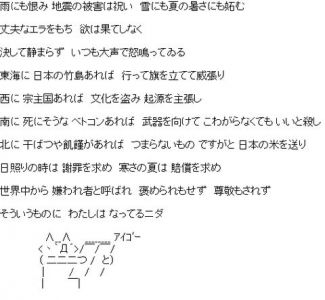 雨にも恨み 地震の被害は祝い　雪にも夏の暑さにも妬む
丈夫なエラをもち　欲は果てしなく
決して静まらず　いつも大声で怒鳴ってゐる
東海に 日本の竹島あれば　行って旗を立てて威張り
西に 宗主国あれば　文化を盗み 起源を主張し
南に 死にそうな ベトコンあれば　武器を向けて こわがらなくても いいと殺し
北に 干ばつや飢饉があれば　つまらないもの ですがと 日本の米を送り
日照りの時は 謝罪を求め　寒さの夏は 賠償を求め
世界中から 嫌われ者と呼ばれ　褒められもせず　尊敬もされず
そういうものに　わたしは なってるニダ
∧_∧　アイゴー
<丶´Д｀>
(二二二つ / と)